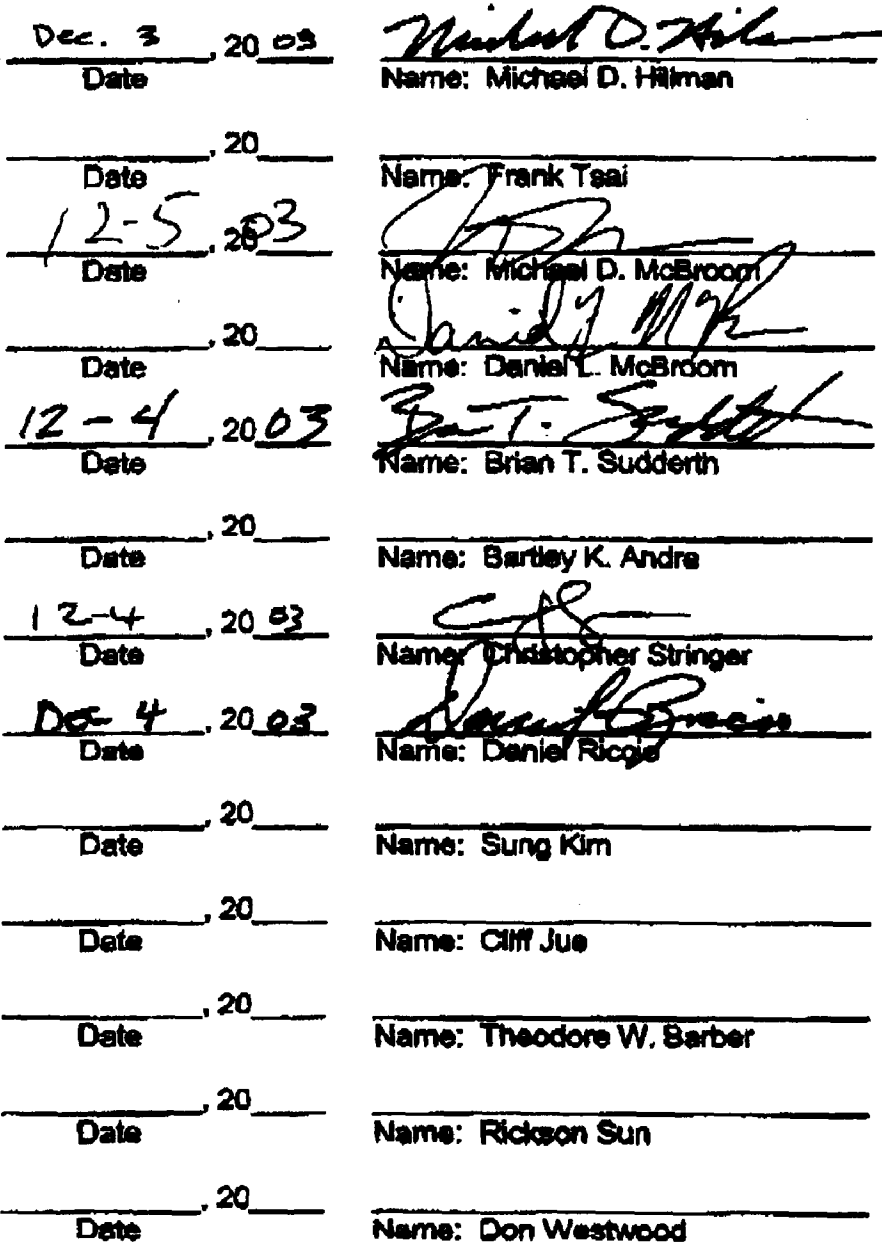 Dec. 3, 20 03 Michael D. Hillman
Date Name: Michael D. Hillman
, 20
Date Name: Frank Tsai
12-5, 2003
Date Name: Michael D. McBroom
, 20 Daniel L. McB
Date Name: Daniel L. McBroom
12-4 20 03 Brian T. Sudderth
Date Name: Brian T. Sudderth
, 20
Date Name: Bartley K. Andre
12-4, 20 03
Date Name: Christopher Stringer
Dec 4, 20 03
Date Name: Daniel Riccio
, 20
Date Name: Sung Kim
, 20
Date Name: Cliff Jue
, 20
Date Name: Theodore W. Barber
, 20
Date Name: Rickson Sun
, 20
Date Name: Don Westwood